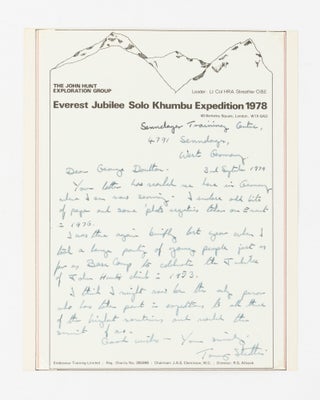 THE JOHN HUNT
EXPLORATION GROUP
Leader: Lt Col HRA Streather OBE
Everest Jubilee Solo Khumbu Expedition 1978
Sennelager Training Centre,
4791 Sennelager,
West Germany
Dear George Doulton, 3rd September 1979
Your letter has reached me here in Germany
where I am now serving. I enclose odd bits
of paper and some taken on Everest
in 1976.
I was there again briefly last year when I
took a large party of young people just as
far as Base Camp to celebrate the Jubilee
of John Hunt's climb in 1953.
I think I might now be the only person
who has taken part in expeditions to all three
of the highest mountains and reached the
summit of
Good wishes - Yours sincerely
Tony Streather
Endeavour Training Limited